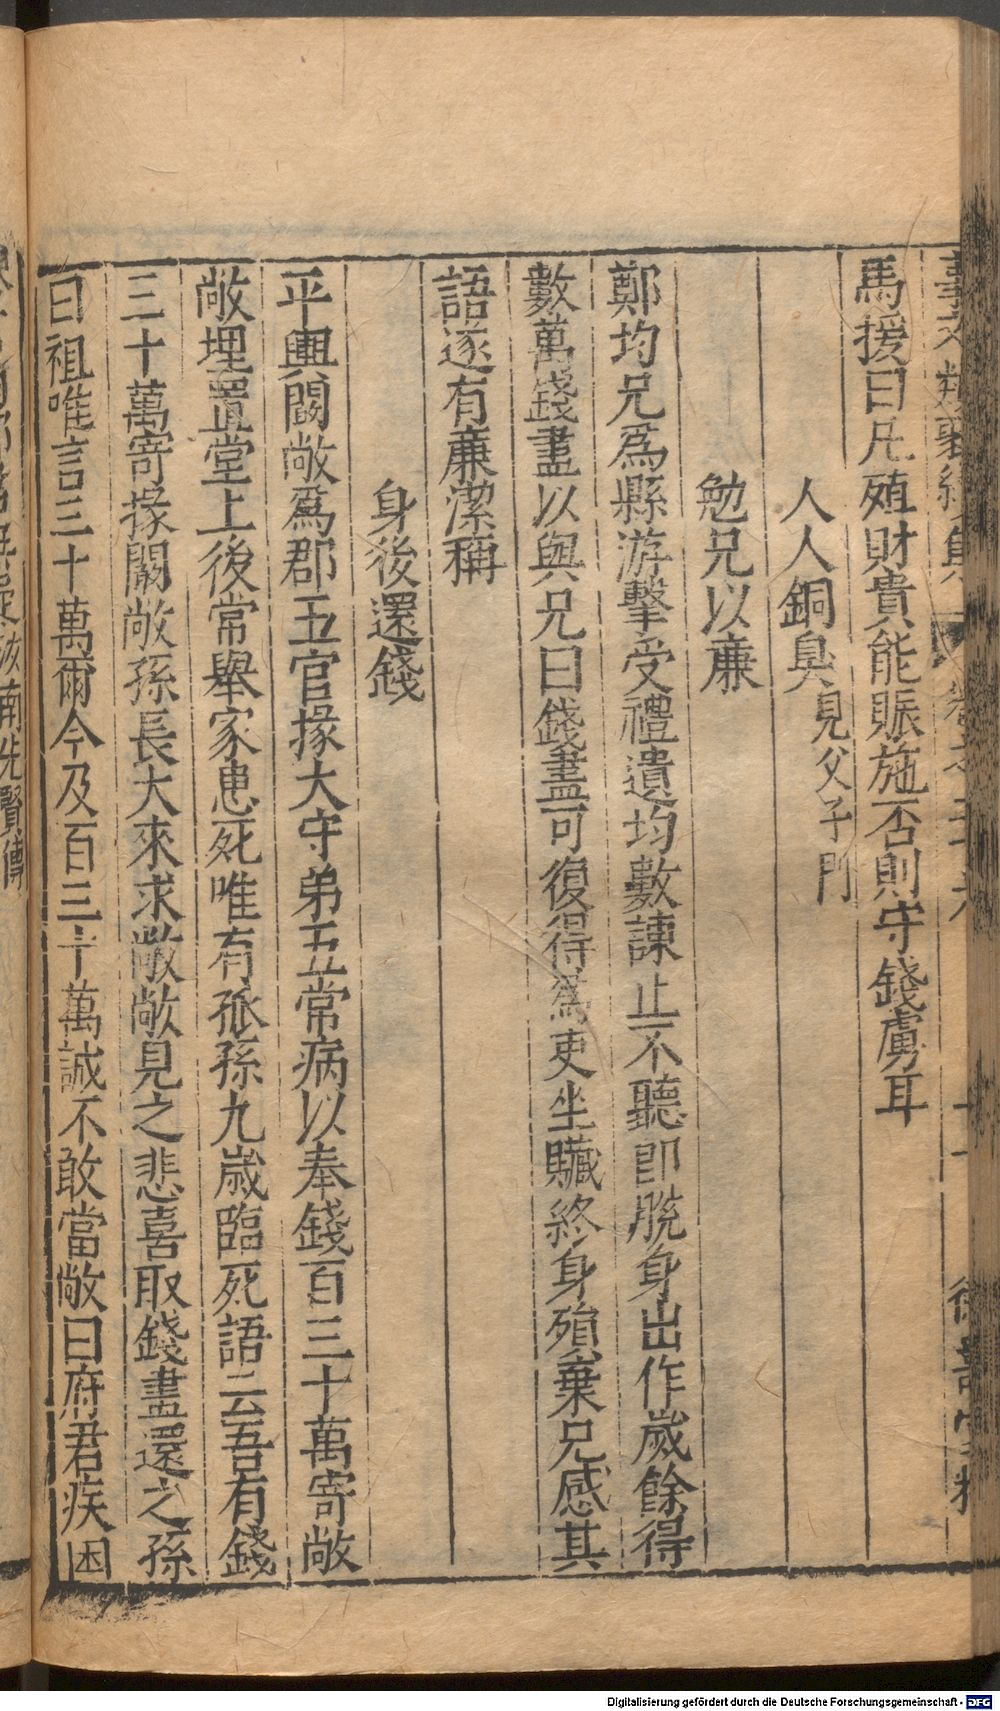 事文類聚續集 卷之二十六 十一 德壽堂梓
馬援曰凡殖財貴能賑施否則守錢虜耳
人人銅臭見父子門
勉兄以廉
鄭均兄爲縣游擊受禮遺均數諫止不聽卽脫身出作歲餘得
數萬錢盡以與兄曰錢盡可復得爲吏坐贓終身殞棄兄感其
語遂有廉潔稱
身後還錢
平輿闞敞爲郡五官掾大守弟五常病以奉錢百三十萬寄敞
敞埋置堂上後常舉家患死唯有孤孫九歲臨死語云吾有錢
三十萬寄掾闞敞孫長大來求敞敞見之悲喜取錢盡還之孫
曰祖唯言三十萬爾今及百三十萬誠不敢當敞曰府君疾困
汝南先賢傳
Digitalisierung gefördert durch die Deutsche Forschungsgemeinschaft - DFG